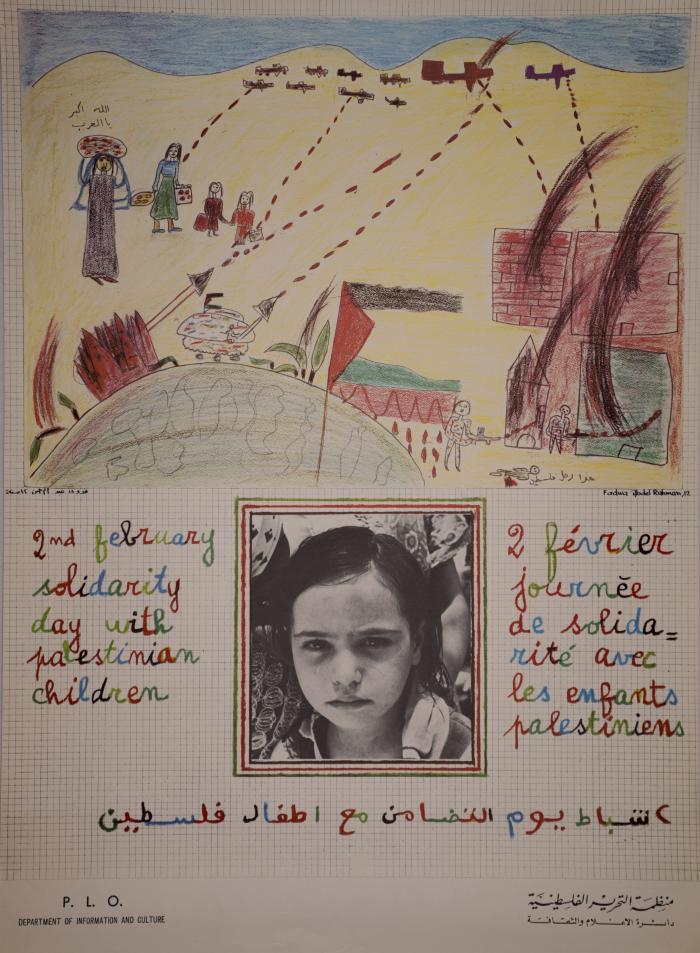 الله اكبر
يا العرب
هذا رجل فلسطين
Fadwa Abdel Rahman, 12
2nd february
solidarity
day with
palestinian
children
2 février
journée
de solida=
rité avec
les enfants
palestiniens
٢ شباط يوم التضامن مع اطفال فلسطين
P. L. O.
DEPARTMENT OF INFORMATION AND CULTURE
منظمة التحرير الفلسطينية
دائرة الاعلام والثقافة